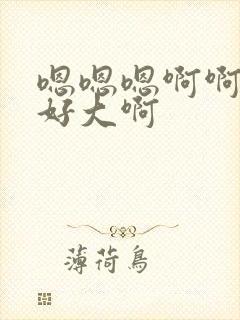 嗯嗯嗯啊啊
好大啊
薄荷鸟